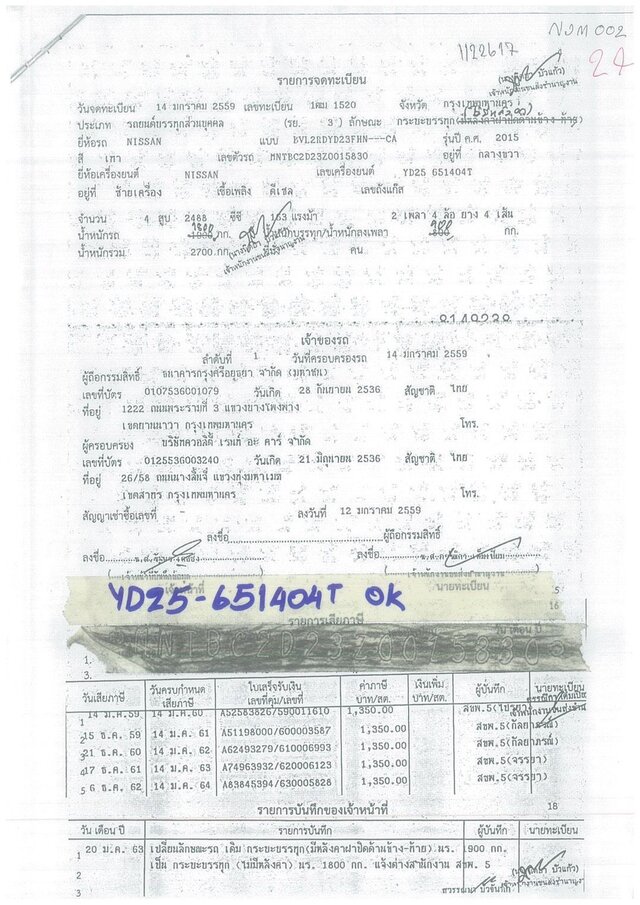 NVM 002
1122617
24
รายการจดทะเบียน
เจ้าพนักงานขนส่งชำนาญงาน
วันจดทะเบียน 14 มกราคม 2559 เลขทะเบียน 1ฒม 1520 จังหวัด กรุงเทพมหานคร
ประเภท รถยนต์บรรทุกส่วนบุคคล (รย. 3 ) ลักษณะ กระบะบรรทุก(มีหลังคาฝาปิดด้านข้าง-ท้าย)
ยี่ห้อรถ NISSAN แบบ BVL2RDYD23FHN---CA รุ่นปี ค.ศ. 2015
สี เทา เลขตัวรถ MNTBC2D23Z0015830 อยู่ที่ กลางขวา
ยี่ห้อเครื่องยนต์ NISSAN เลขเครื่องยนต์ YD25 651404T
อยู่ที่ ซ้ายเครื่อง เชื้อเพลิง ดีเซล เลขถังแก๊ส
จำนวน 4 สูบ 2488 ซีซี 163 แรงม้า 2 เพลา 4 ล้อ ยาง 4 เส้น
น้ำหนักรถ 1800 กก. น้ำหนักบรรทุก/น้ำหนักลงเพลา 900 กก.
น้ำหนักรวม 2700 กก. คน
เจ้าพนักงานขนส่งชำนาญงาน
0140220
เจ้าของรถ
ลำดับที่ 1 วันที่ครอบครองรถ 14 มกราคม 2559
ผู้ถือกรรมสิทธิ์ ธนาคารกรุงศรีอยุธยา จำกัด (มหาชน)
เลขที่บัตร 0107536001079 วันเกิด 28 กันยายน 2536 สัญชาติ ไทย
ที่อยู่ 1222 ถนนพระรามที่ 3 แขวงบางโพงพาง
เขตยานนาวา กรุงเทพมหานคร โทร.
ผู้ครอบครอง บริษัทควอลิตี้ เรนท์ อะ คาร์ จำกัด
เลขที่บัตร 0125536003240 วันเกิด 21 มิถุนายน 2536 สัญชาติ ไทย
ที่อยู่ 26/58 ถนนนางลิ้นจี่ แขวงทุ่งมหาเมฆ
เขตสาทร กรุงเทพมหานคร โทร.
สัญญาเช่าซื้อเลขที่ ลงวันที่ 12 มกราคม 2559
ลงชื่อ ผู้ถือกรรมสิทธิ์
ลงชื่อ ลงชื่อ
นายทะเบียน
YD25-651404T OK
16
รายการเสียภาษี
วัน เดือน ปี
1.
3.
วันเสียภาษี วันครบกำหนดเสียภาษี ใบเสร็จรับเงิน เลขที่คุ้ม/เลขที่ ค่าภาษี บาท/สต. เงินเพิ่ม บาท/สต. ผู้บันทึก นายทะเบียน
1 14 ม.ค.59 14 ม.ค. 60 A52583826/590011610 1,350.00
2 15 ธ.ค. 59 14 ม.ค. 61 A51198000/600003587 1,350.00 สขพ.5(กัลยาภรณ์)
3 21 ธ.ค. 60 14 ม.ค. 62 A62493279/610006993 1,350.00 สขพ.5(กัลยาภรณ์)
4 17 ธ.ค. 61 14 ม.ค. 63 A74963932/620006123 1,350.00 สขพ.5(จรรยา)
5 6 ธ.ค. 62 14 ม.ค. 64 A83845394/630005828 1,350.00 สขพ.5(จรรยา)
รายการบันทึกของเจ้าหน้าที่ 18
วัน เดือน ปี รายการบันทึก ผู้บันทึก นายทะเบียน
1 20 ม.ค. 63 เปลี่ยนลักษณะรถ เดิม กระบะบรรทุก(มีหลังคาฝาปิดด้านข้าง-ท้าย) นร. 1900 กก.
2 เป็น กระบะบรรทุก (ไม่มีหลังคา) นร. 1800 กก. แจ้งต่างสำนักงาน สขพ. 5
3